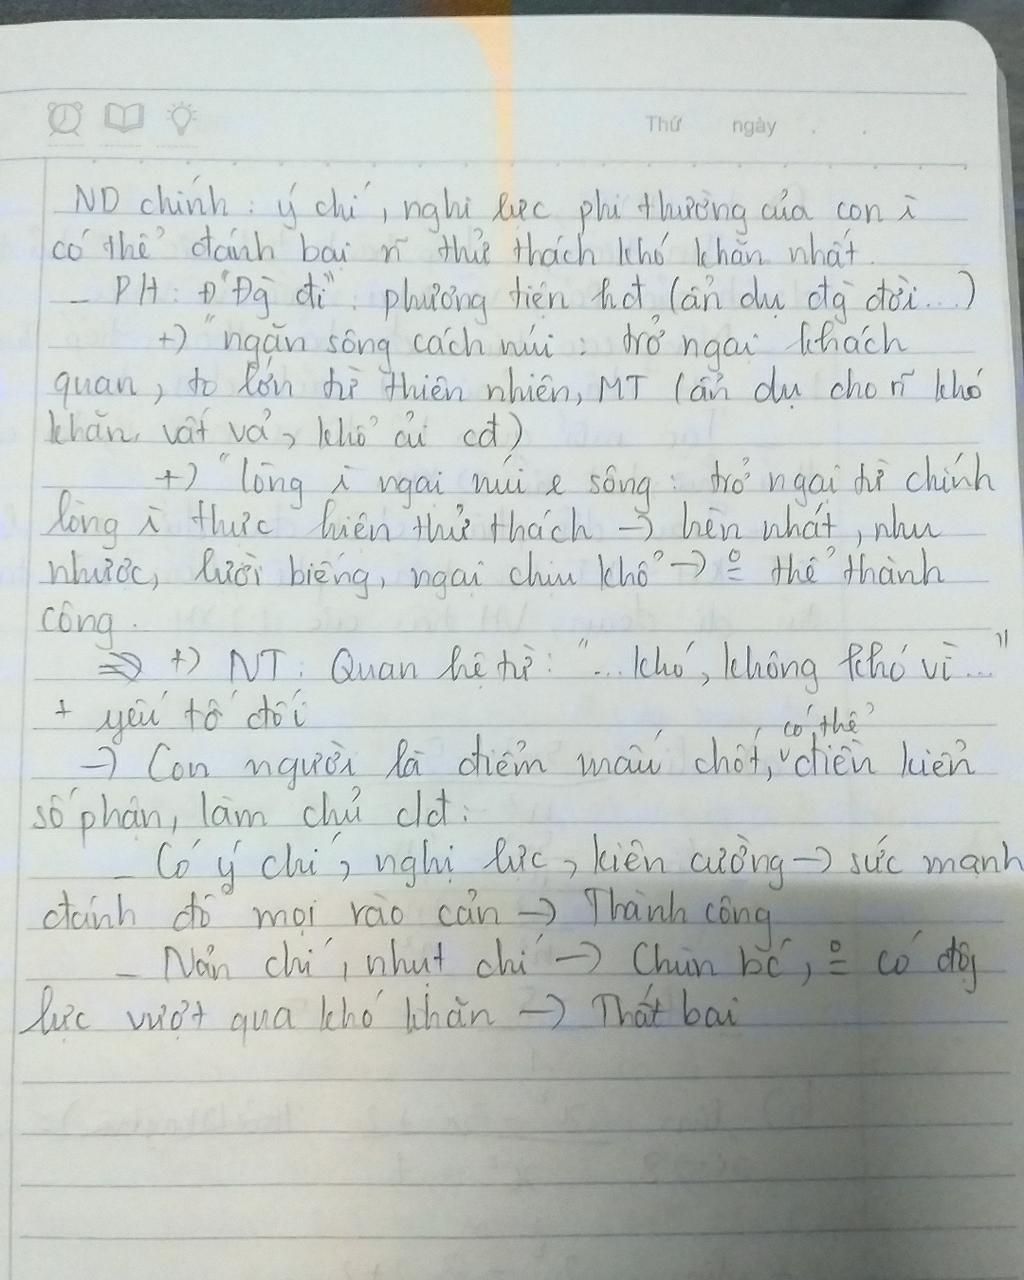 Thứ ngày . .
ND chính : ý chí, nghị lực phi thường của con ì
có thể đánh bại ñ thử thách khó khăn nhất.
- PH : Đ "Đg đi" : phương tiện hđ (ẩn dụ đg đời...)
+) "ngăn sông cách núi : trở ngại khách
quan, to lớn từ thiên nhiên, MT (ẩn dụ cho ñ khó
khăn, vất vả, khổ ải cđ)
+) "lòng ì ngại núi e sông : trở ngại từ chính
lòng ì thực hiện thử thách → hèn nhát, nhu
nhược, lười biếng, ngại chịu khổ → thể thành
công.
⇒ +) NT : Quan hệ từ : "...khó, không khó vì..."
+ yếu tố đối
có thể
→ Con người là điểm mấu chốt, điều kiển
số phận, làm chủ clđ :
- Có ý chí, nghị lực, kiên cường → sức mạnh
đánh đổ mọi rào cản → Thành công
- Nản chí, nhụt chí → Chùn bc, có độg
lực vượt qua khó khăn → Thất bại